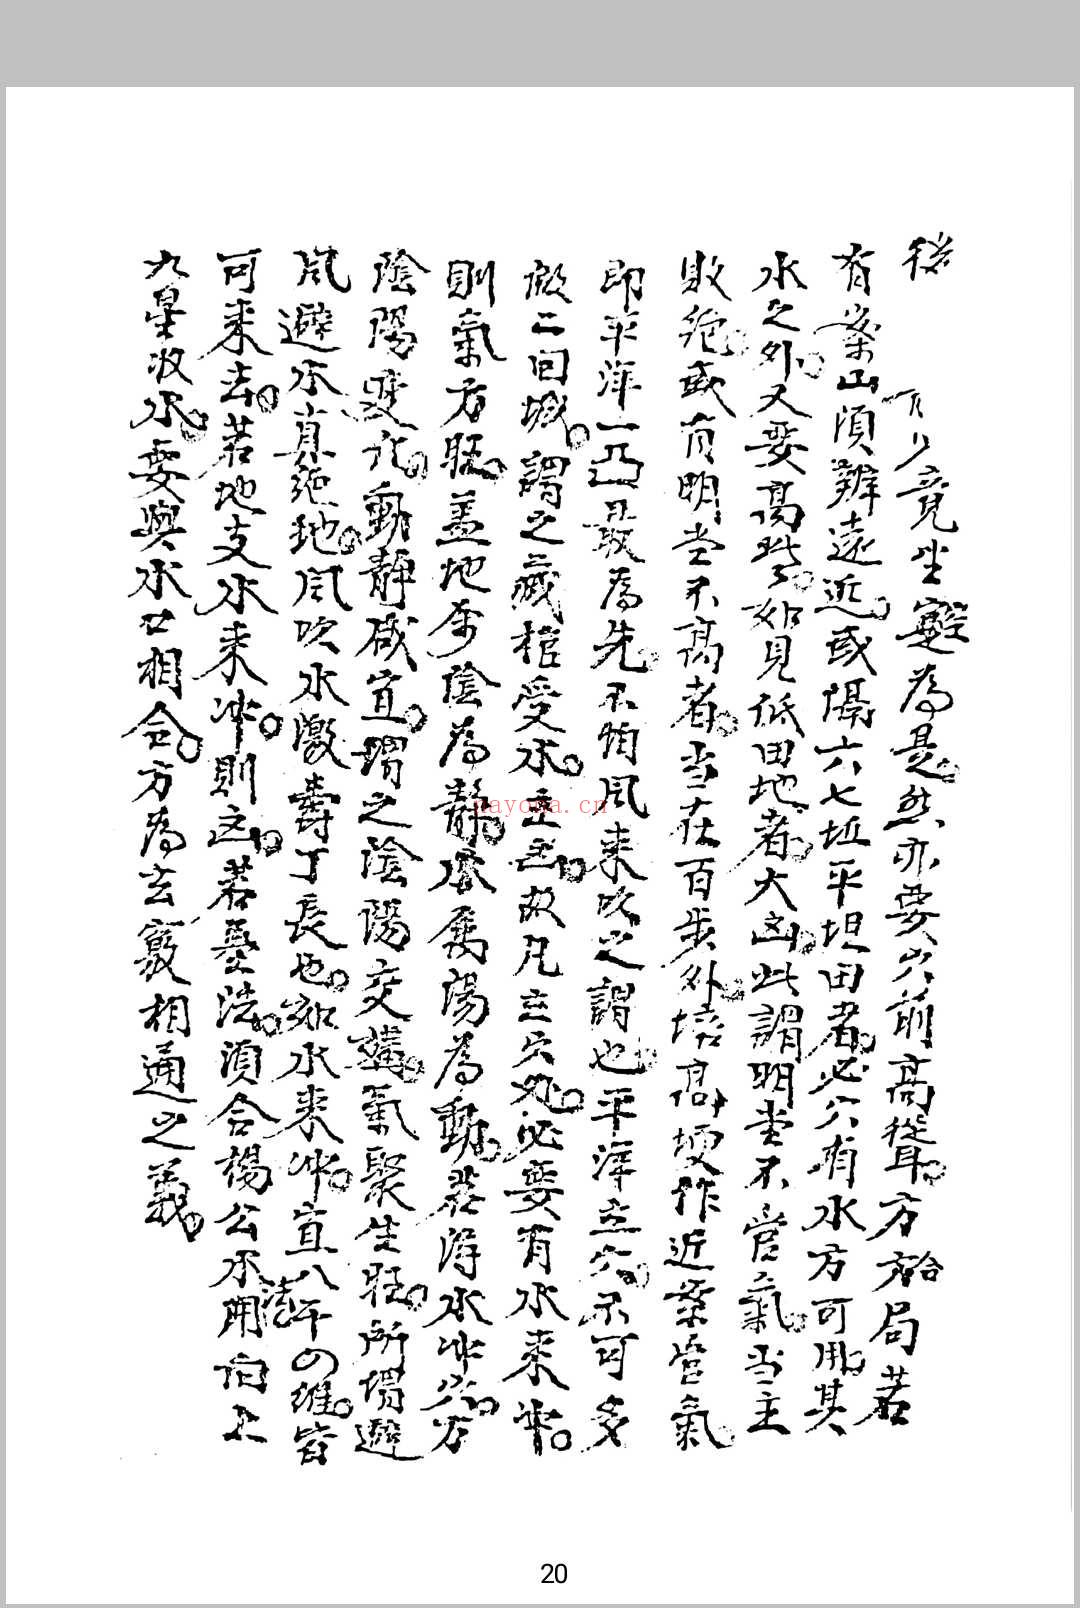 後 竟坐實為是然亦要穴前高聳方 局若
有案山須辨遠近或隔六七坵平坦田者必穴有水方可用其
水之外又要高些如見低田地者大凶此謂明堂不官氣当主
敗絕或有明堂不高者当在百步外培高埂作近案官氣
即平洋一凸最為先不怕風来吹之謂也平洋立穴不可多
二回城謂之藏棺受水主主故凡立穴处必要有水来冲
則氣方旺盖地夸陰為静水属陽為動若得水冲穴方
陰陽变化動静咸宜謂之陰陽交媾氣聚生旺所謂避
風避水真絕地風吹水激壽丁長也如水来冲宜八干四維皆
可来去若地支水来冲則凶若法須合楊公水法用向上
九星收水要與水口相合方為玄竅相通之義
dayoga.cn
20